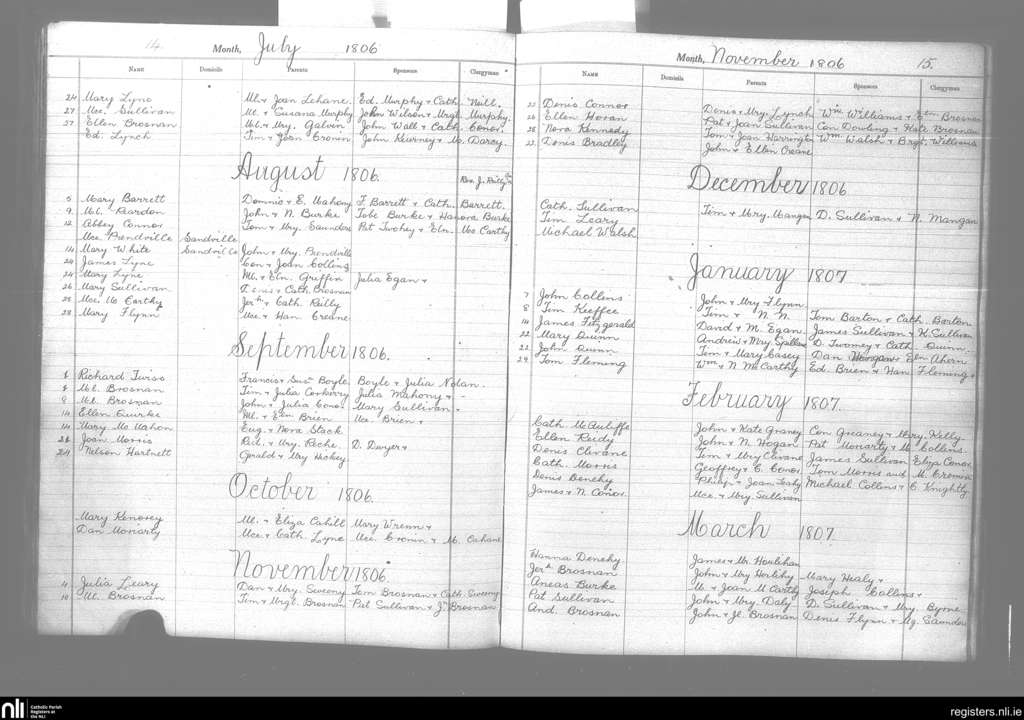 14.
Month, July 1806
Name Domicile Parents Sponsors Clergyman
24 Mary Lyne Ml. + Joan Lehane. Ed. Murphy + Cath. Neill.
27 Mce. Sullivan Ml. + Susana Murphy John Wilson + Mrgt. Murphy.
27 Ellen Brosnan Ml. + Mry. Galvin John Wall + Cath. Conor.
Ed. Lynch Tim + Joan Cronin John Kearney + M. Darcy.
August 1806.
Rev. J. Reilly
5 Mary Barrett Dominic + E. Mahony F. Barrett + Cath. Barrett.
9 Ml. Reardon John + N. Burke Tobe Burke + Hanora Burke
12 Abbey Connor Tom + Mry. Saunders Pat Twohey + Eln. McCarthy
Mce. Prendville Sandville
14 Mary White Sandville John + Mry. Prendville
24 James Lyne Con + Joan Collins
24 Mary Lyne Ml. + Eln. Griffin Julia Egan +
26 Mary Sullivan Denis + Cath. Brosnan
28 Mce. Mc Carthy Jerh. + Cath. Reilly
28 Mary Flynn Mce. + Han. Creane
September 1806.
Richard Twiss Francis + Susn. Boyle. Boyle + Julia Nolan.
8 Ml. Brosnan Tim + Julia Corkerry Julia Mahony + -
8 Ml. Brosnan John + Julia Conor Mary Sullivan -
14 Ellen Quirke Ml. + Eln Brien Mce. Brien +
14 Mary Mc Mahon Eug. + Nora Stack
Joan Morris Rid. + Mry. Roche. D. Dwyer +
24 Nelson Hartnett Gerald + Mry Hickey
October 1806.
Mary Kenovey Ml. + Eliza Cahill Mary Wrenn +
Dan Moriarty Mce. + Cath. Lyne Mce. Cronin + M. Cahane
November 1806.
4 Julia Leary Dan + Mry. Sweeny Tom Brosnan + Cath. Sweeny
10 Ml. Brosnan Tim + Mrgt. Brosnan Pat Sullivan + J. Brosnan
Month, November 1806 15.
Name Domicile Parents Sponsors Clergyman
Denis Connor Denis + Mry. Lynch Wm Williams + Eln Brosnan
26 Ellen Horan Pat + Joan Sullivan Con Dowling + Kate Brosnan
28 Nora Kennedy Tom + Joan Harrington Wm Walsh + Brgt. Williams
Denis Bradley John + Ellen Creane
December 1806
Cath. Sullivan Tim + Mry Mangan D. Sullivan + N. Mangan
Tim Leary
Michael Walsh
January 1807
7 John Collins John + Mry Flynn
8 Tim Keeffee Tim + N. N. Tom Barton + Cath. Barton
14 James Fitzgerald David + M. Egan. James Sullivan + K. Sullivan
22 Mary Quinn Andrew + Mry Spillane D. Twomey + Cath. Quinn.
22 John Quinn Tim + Mary Casey Dan Horgan + Eln Ahern
29 Tom Fleming Wm + N McCarthy Ed. Brien + Han Fleming +
February 1807.
Cath McAuliffe John + Kate Graney Con Greaney + Mry. Kelly
Ellen Reidy John + N. Hogan Pat Moriarty + M. Collins.
Denis Clivane Tim + Mry Clivane James Sullivan Eliza Conor
Cath. Morris Geoffrey + C. Conor. Tom Morris and M. Cronin
Denis Denehy Philip + Joan Leahy Michael Collins + C. Knightly
James + N. Conor. Mce. + Mry. Sullivan
March 1807.
Hanna Denehy James + Mr. Houlihan
Jerh Brosnan John + Mry Herlihy Mary Healy +
Aneas Burke M. + Joan McCarthy Joseph Collins +
Pat Sullivan John + Mry. Daly D. Sullivan + Mry. Byrne
And. Brosnan John + Jl. Brosnan Denis Flynn + Mg. Saunders
nli
Catholic Parish
Registers at
the NLI
registers.nli.ie